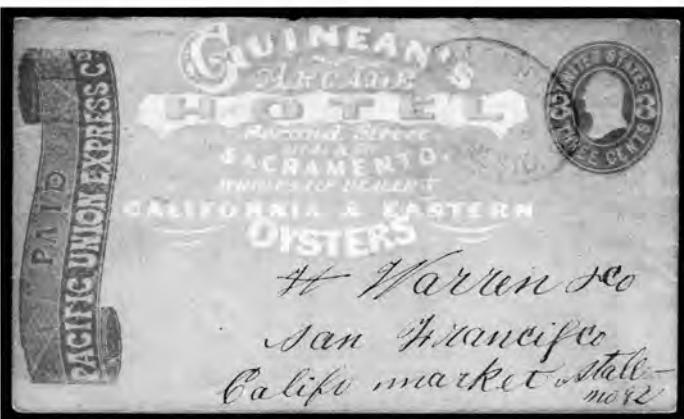 PAID
PACIFIC UNION EXPRESS Co
GUINEAN'S
ARCADE
HOTEL
Second Street
SACRAMENTO.
WHOLESALE DEALER IN
CALIFORNIA & EASTERN
OYSTERS
UNITED STATES
THREE CENTS
H Warren & Co
San Francisco
Califo market stall
no 82